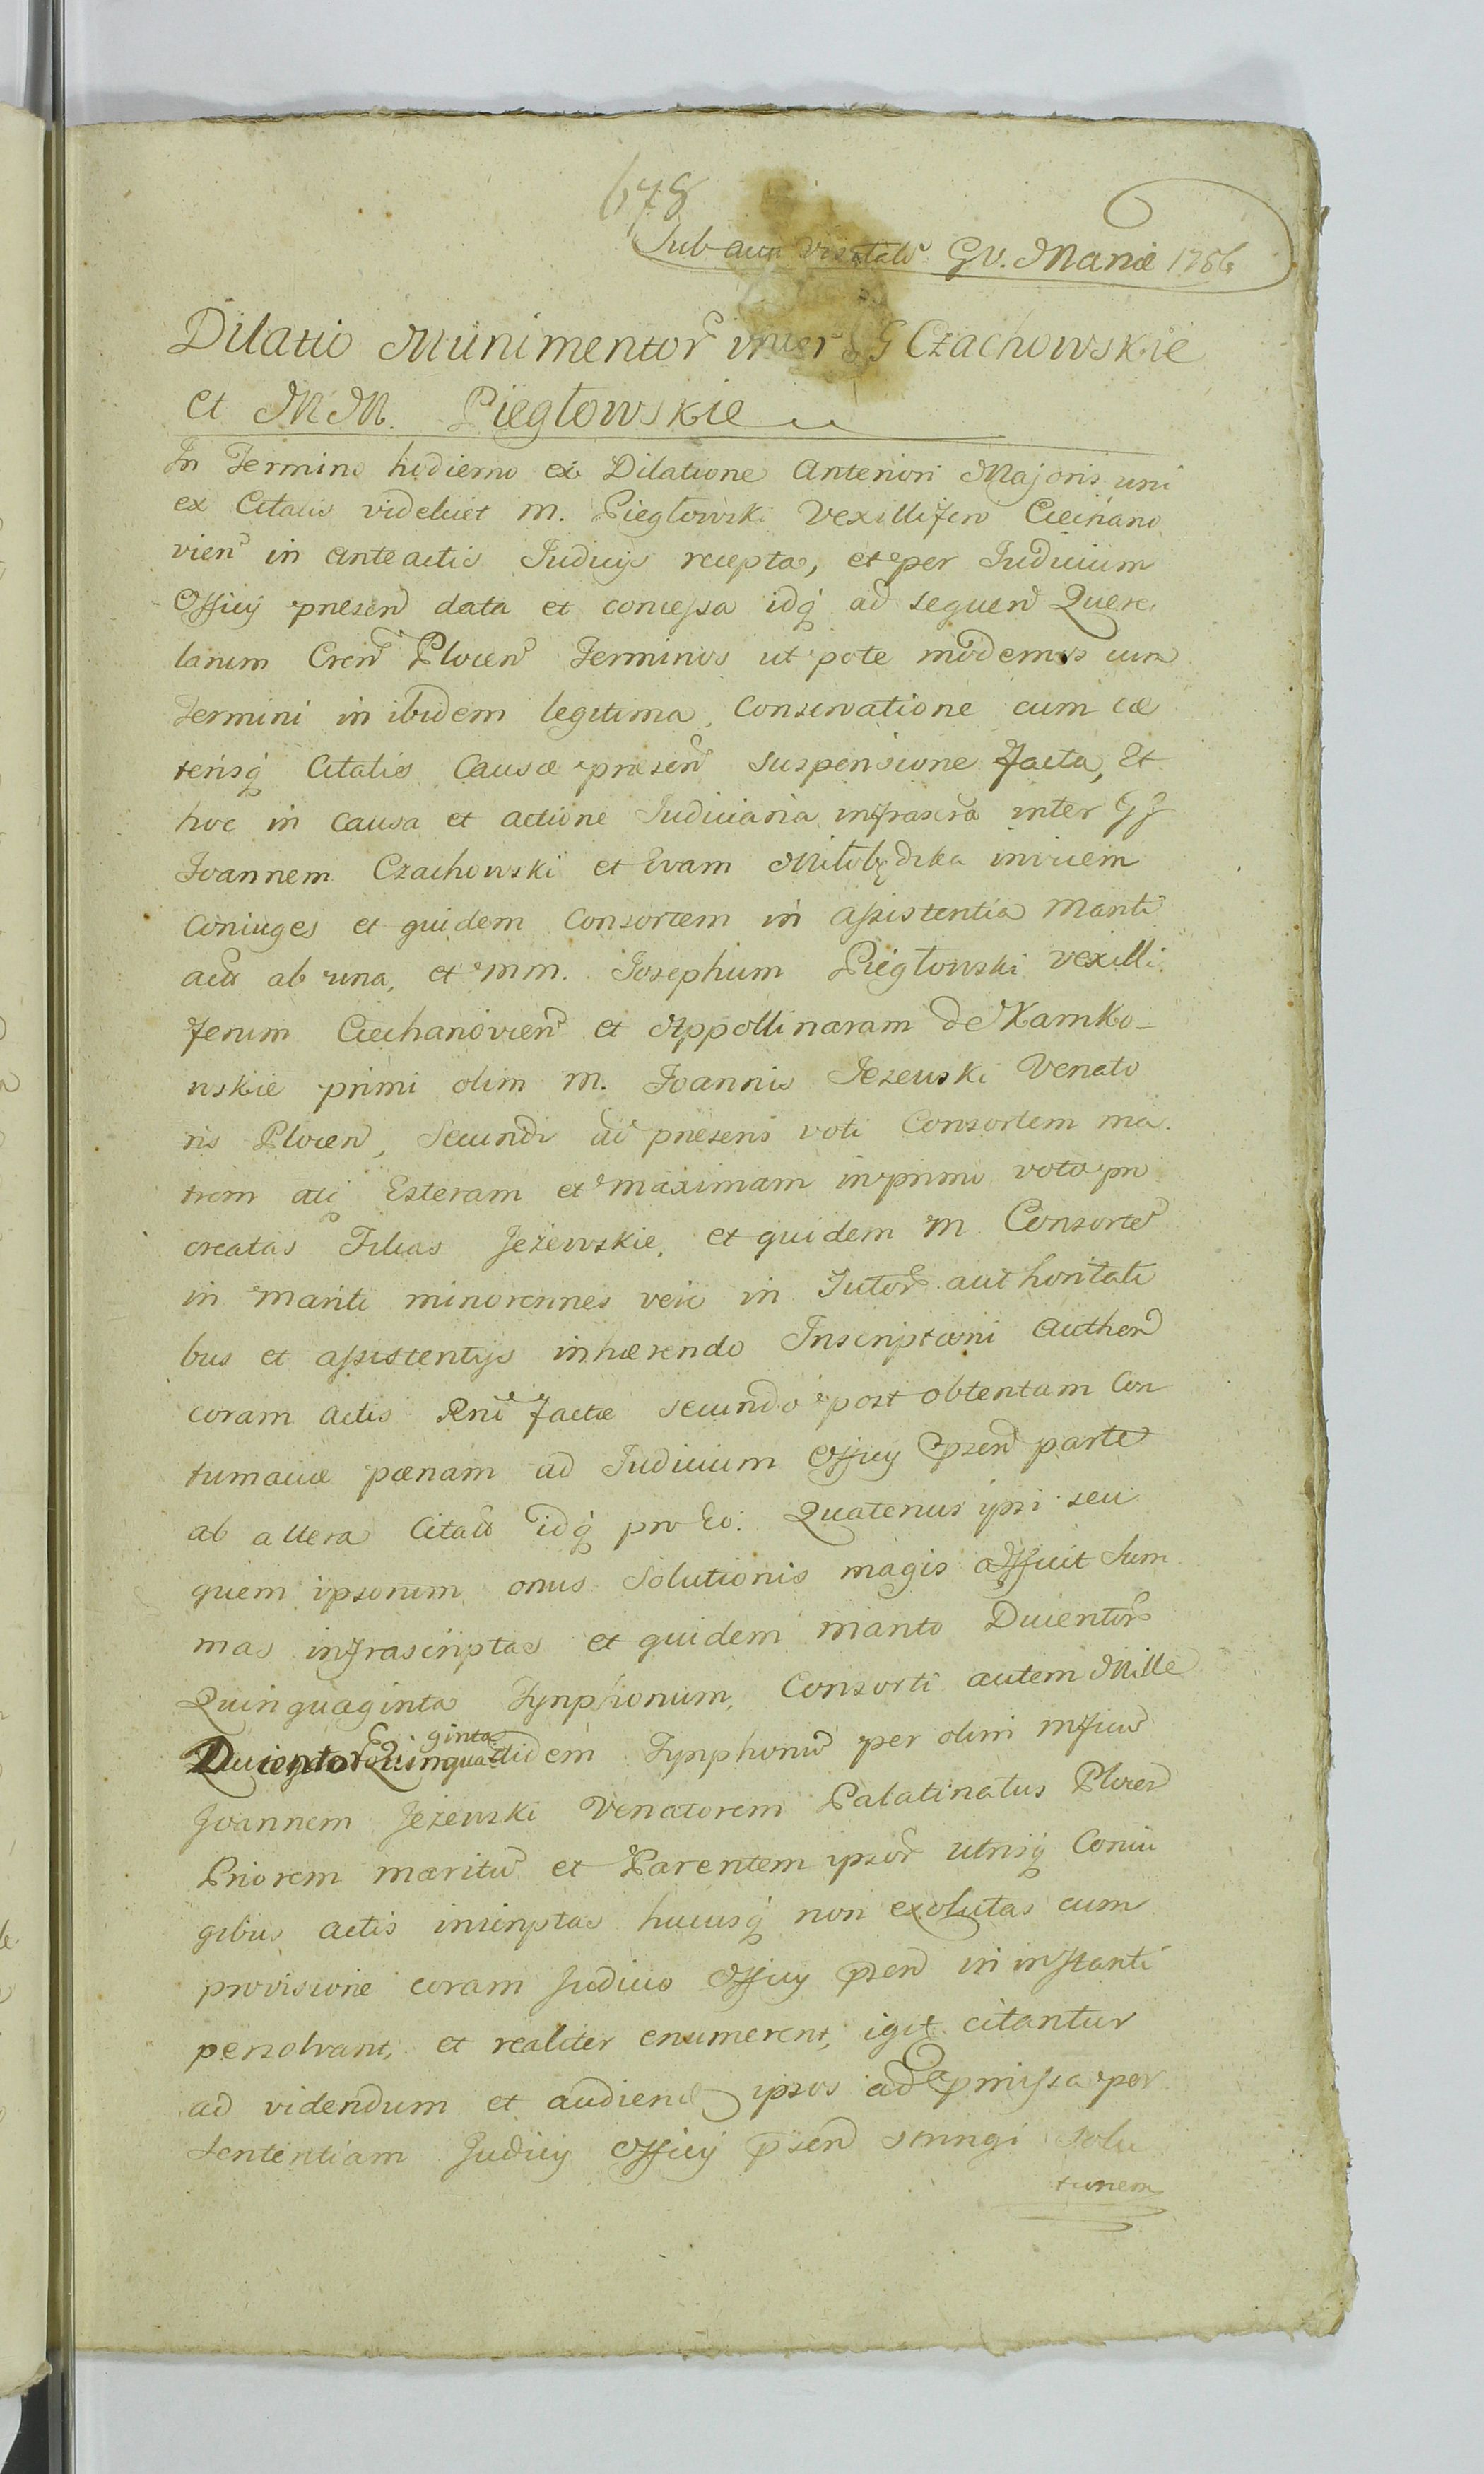 678
Sub actu Visitatis G V. Mariæ 1756
Dilatio Munimentor inter GG Czachowskie
et MM. Piegłowskie
In Termino hodierno ex Dilatione Anteriori Majoris uni
ex Citatis videlicet M. Piegłowski Vexillifero Ciechano
vien in anteactis Iudicijs recepta, et per Iudicium
Officij presen data et concessa idq ad sequen Quere
larum Cren Plocen Terminos ut pote modernos cum
Termini in ibidem legitima Conservatione cum cæ
terisq Citatis Causæ præsen suspensione facta, Et
hoc in causa et actione Iudiciaria infrascra inter GG
Joannem Czachowski et Evam Miłobędzka invicem
Coniuges et quidem Consortem in assistentia Mariti
acts ab una, et MM. Josephum Piegłowski vexilli
ferum Ciechanovien et Appollinaram de Karnko-
wskie primi olim M. Joannis Jezewski Venato
ris Plocen, Secundi ad presens voti Consortem ma
trem atq Esteram et Maximam in primo voto pro
creatas Filias Jeżewskie, et quidem M Consorte
in Mariti minorennes vero in Tutor authoritati
bus et assistentijs inhærendo Inscriptioni Authen
coram actis Rni factæ secundo post obtentam Con
tumaciæ pænam ad Iudicium Officij psen parte
ab altera Citats idq pro Eo: Quatenus ipsi seu
quem ipsorum onus Solutionis magis afficit Sum
mas infrascriptas et quidem marito Ducentor
Quinquaginta Tynphonum, Consorti autem Mille
Ducentor Quinquaginta itidem Tynphonu per olim Mficu
Joannem Jeżewski Venatorem Palatinatus Plocen
Priorem maritu et Parentem ipsor utrisq Coniu
gibus actis inscriptas hucusq non exolutas cum
provisione coram Judicio Officij psen in instanti
persolvant, et realiter enumerent, igit citantur
ad videndum et audiend ipsos ad pmissa per
Sententiam Judicij Officij psen stringi Solu
tionem